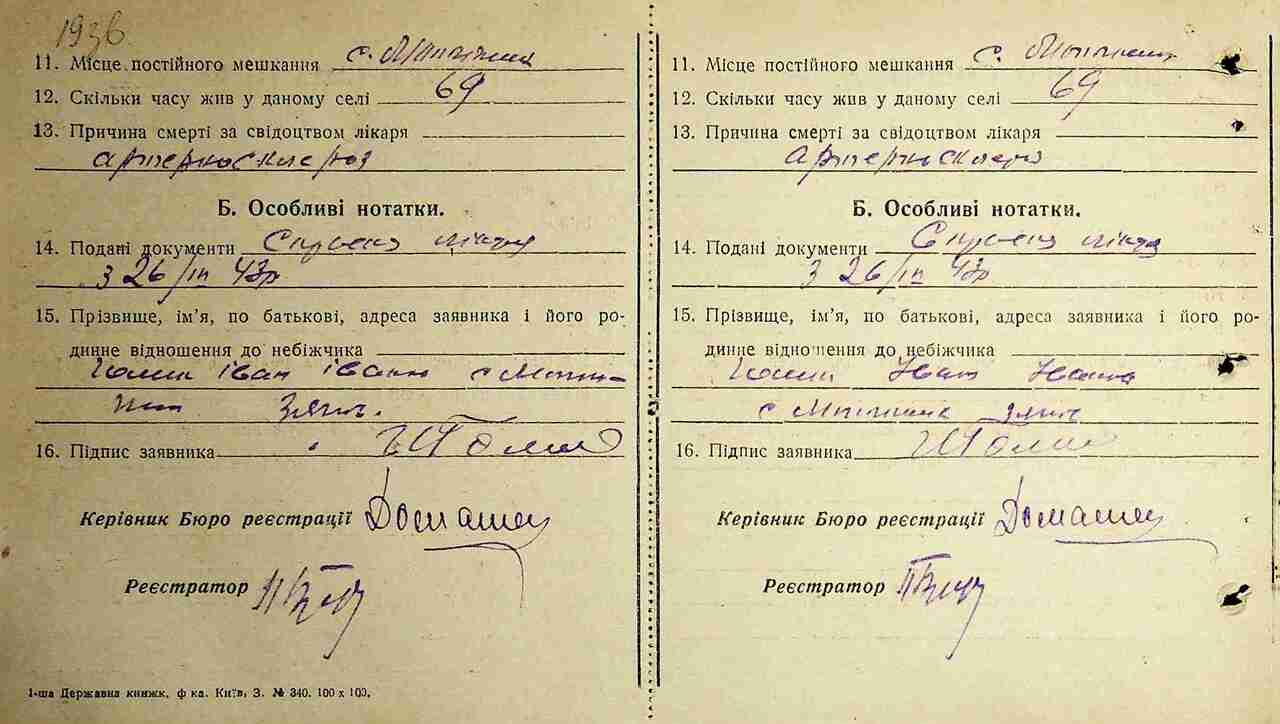 1936
11. Місце постійного мешкання с.
12. Скільки часу жив у даному селі 69
13. Причина смерті за свідоцтвом лікаря
артериосклероз
Б. Особливі нотатки.
14. Подані документи Справка лікаря
з 26/III 43р
15. Прізвище, ім'я, по батькові, адреса заявника і його ро-
динне відношення до небіжчика
Іван Іванов с
зять.
16. Підпис заявника
Керівник Бюро реєстрації
Реєстратор
1-ша Державна книжк. ф-ка. Київ, З. № 340. 100 x 100.
11. Місце постійного мешкання с.
12. Скільки часу жив у даному селі 69
13. Причина смерті за свідоцтвом лікаря
Артериосклероз
Б. Особливі нотатки.
14. Подані документи Справка лікаря
з 26/III 43р
15. Прізвище, ім'я, по батькові, адреса заявника і його ро-
динне відношення до небіжчика
Иван
с зять
16. Підпис заявника
Керівник Бюро реєстрації
Реєстратор